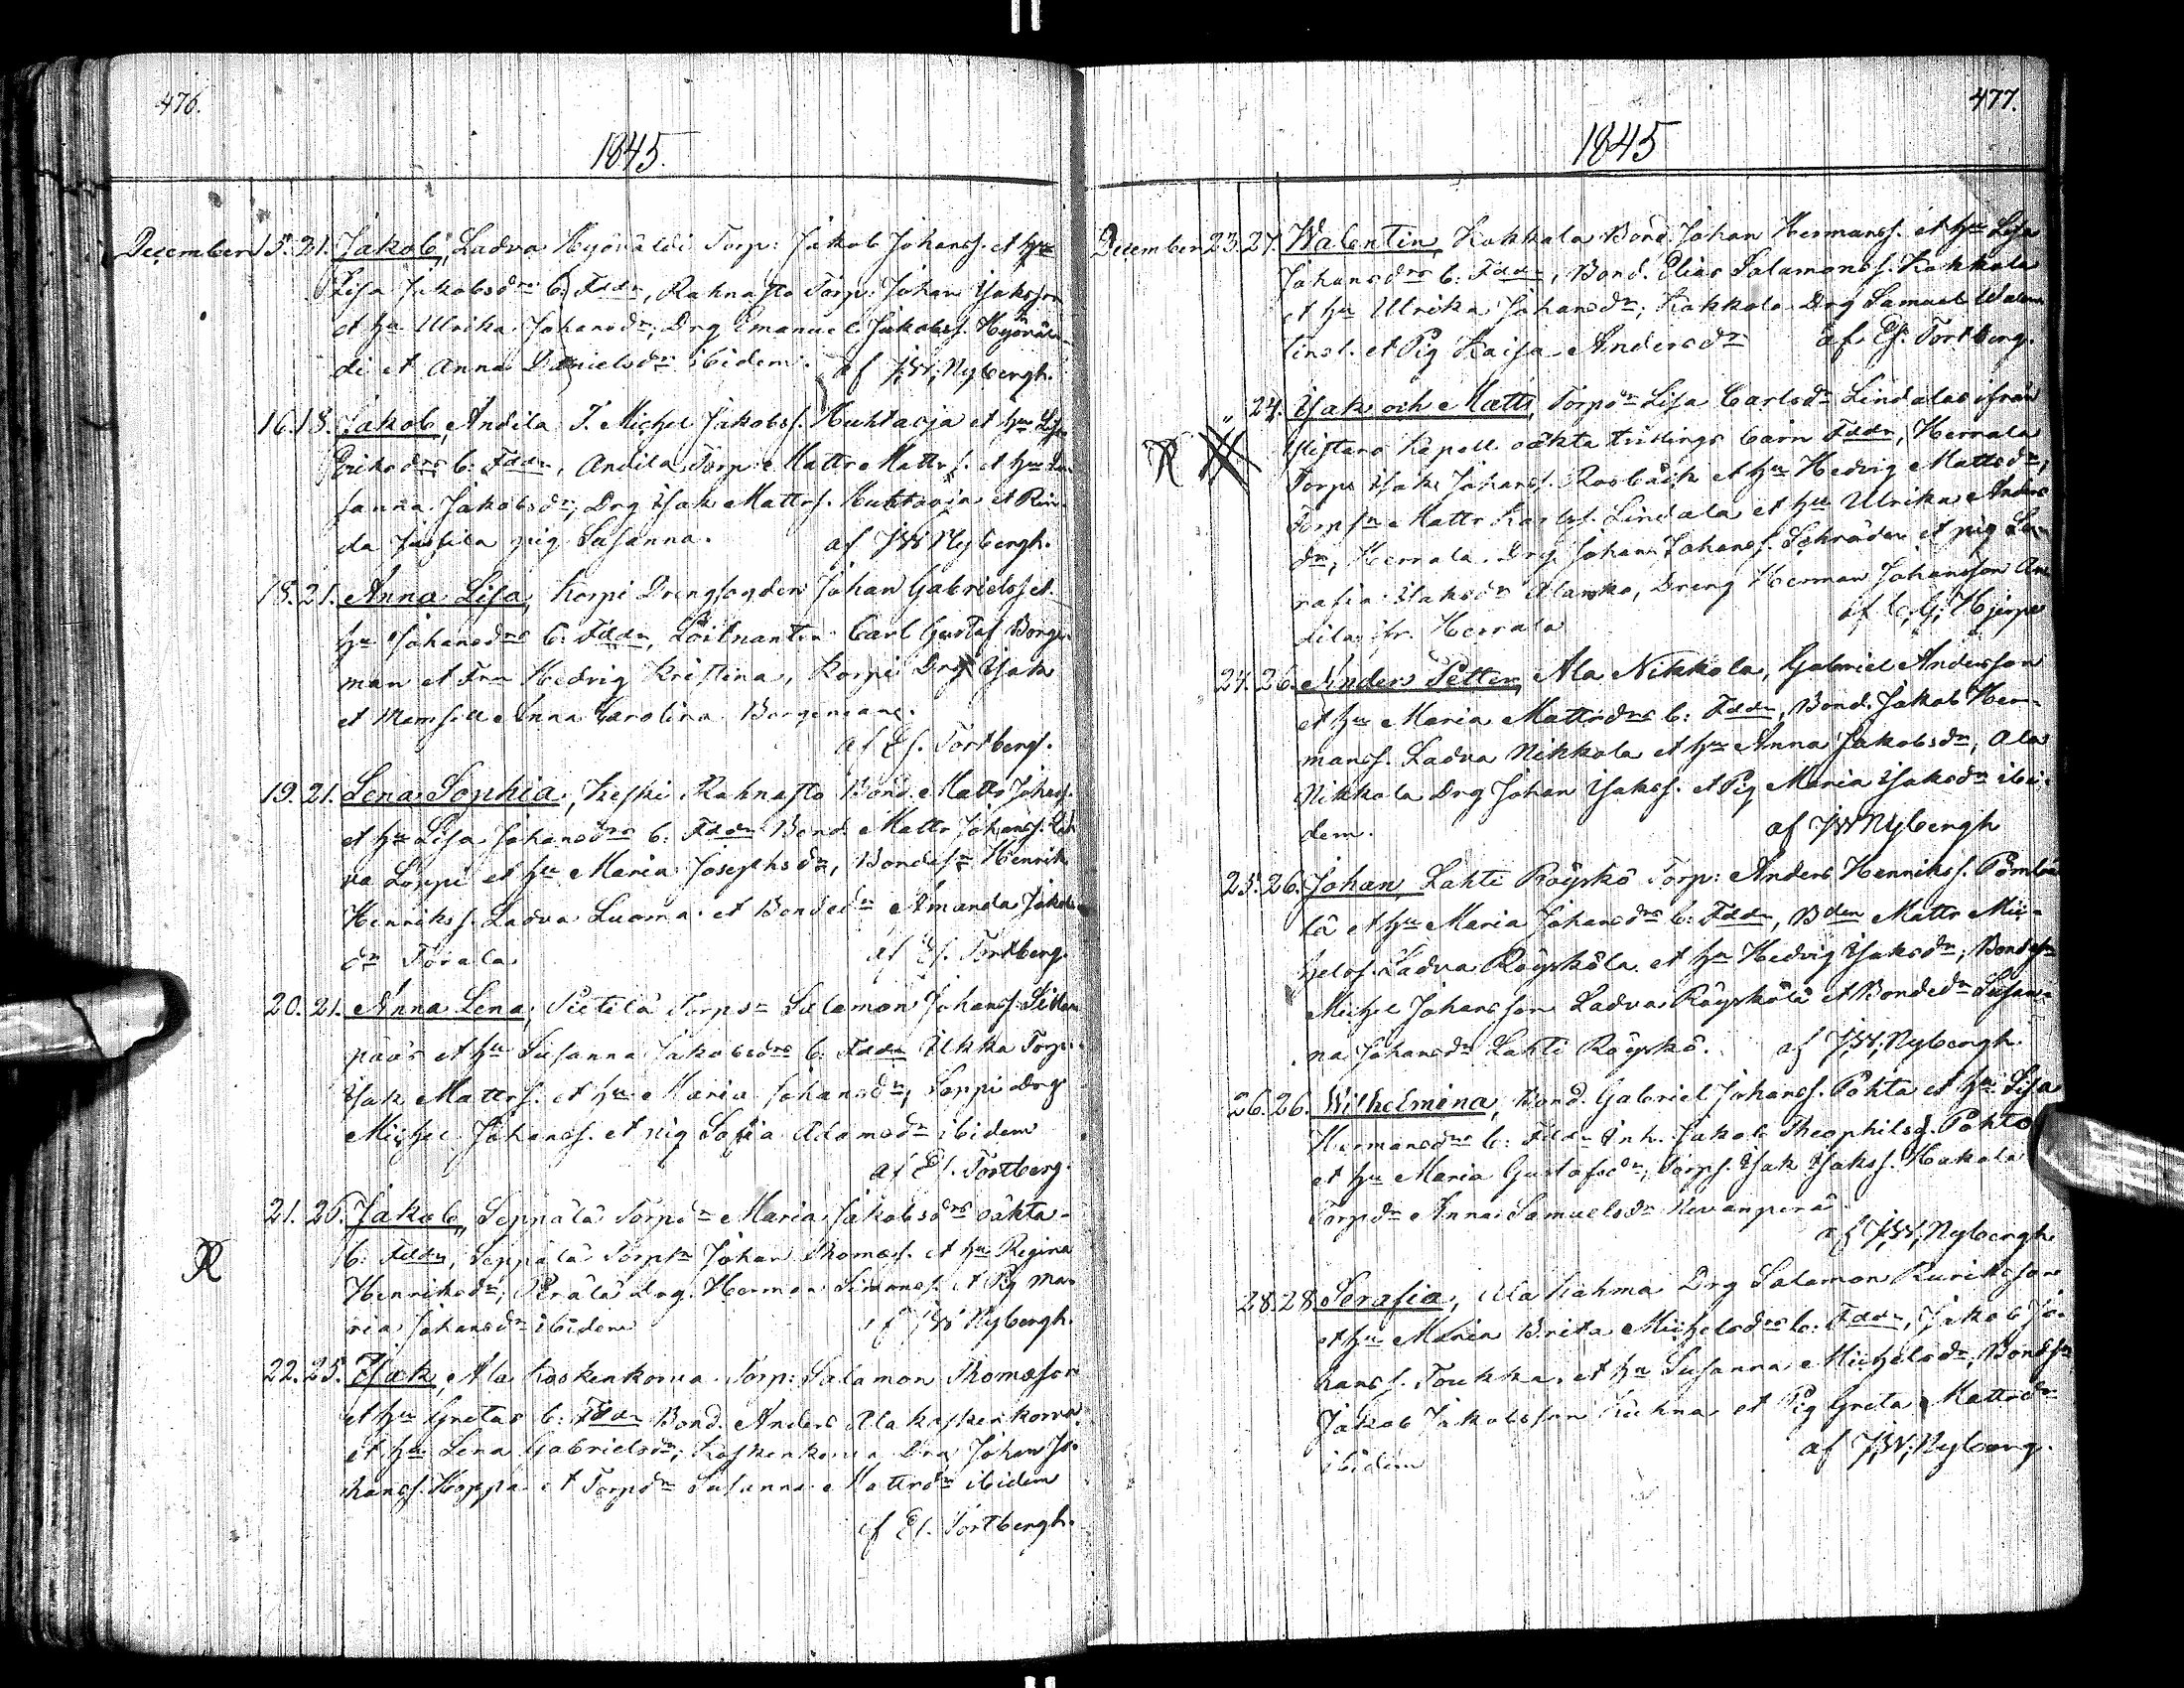 476.
1845.
December 15. 21. Jakob, Ladva Hyövälti Torp: Jakob Johanss. et hu
Lisa Jakobsdrs b: Fddr, Rahnasto Torp: Johan Isaksson
et hu Ulrika Johansdr, Drg Emanuel Jakobss. Hyöväl-
di et Anna Danielsdr ibidem. af J,W,Nybergh.
16. 18. Jakob, Andila T. Michel Jakobss. Huhtarja et hu Lisa
Eriksdrs b: Fddr, Andila Torp: Matts Matts s. et hu Su-
sanna Jakobsdr, Drg Isak Mattss. Huhtarja et Rin-
da Jussila pig Susanna. af JW Nybergh.
18. 21. Anna Lisa, Korpi Drengfogden Johan Gabrielss et
hu Johansdrs b: Fddr, Löitnanten Carl Gustaf Borge-
man et Fru Hedvig Kristina, Korpi Drg Isak
et Mamsell Anna Carolina Borgeman.
af Es. Tortberg.
19. 21. Lena Sophia, Keski Rahnasto Bond. Matts Johanss.
et hu Lisa Johansdrs b: Fddr Bond. Matts Johanss. Lad-
va Loppi et hu Maria Josephsdr, Bondesn Henrik
Henrikss. Ladva Luoma et Bondedr Amanda Jakobs
dr Törala af Es. Tortberg.
20. 21. Anna Lena, Pietilä Torpsn Salomon Johanss.
et hu Susanna Jakobsdrs b: Fddr Ukka Torp:
Isak Mattss. et hu Maria Johansdr, Loppi Drg
Michel Johanss. et pig Sofia Adamsdr ibidem
af Es. Tortberg.
21. 26. Jakob, Seppälä Torpdr Maria Jakobsdrs oäkta
R b: Fddr, Seppälä Torpsn Johan Thomass. et hu Regina
Henriksdr, Perälä Drg Herman Simonss. et Pig Ma-
ria Johansdr ibidem af JW Nybergh.
22. 25. Isak, Ala Koskenkorva Torp: Salamon Thomasson
et hu Gretas b: Fddr Bond. Anders Ala Koskenkorva
et hu Lena Gabrielsdr, Koskenkorva Drg Johan Jo-
hanss. Hoppa et Torpdr Susanna Mattsdr ibidem
af Es. Tortbergh.
477.
1845
December 23. 27. Walentin, Kokkola Bond. Johan Hermanss. et hu Lisa
Johansdrs b: Fddr, Bond. Elias Salamonss. Kokkola
et hu Ulrika Johansdr, Kokkola Drg Samuel Walen-
tinss. et Pig Kaisa Andersdr af Es. Tortberg.
" 24. Isak och Matts, Torpdr Lisa Carlsdr Lindalas ifrån
R Ylistaro Kapell oäkta tvillings barn Fddr, Herrala
Torp: Isak Johanss. Rosbäck et hu Hedvig Mattsdr,
Torpsn Matts Karlss. Lindala et hu Ulrika Anders
dr, Herrala Drg Johan Johanss. Schröder et pig Se-
rafia Isaksdr Alanko, Dreng Herman Johansson An-
dila fr. Herrala af C, G, Hjerpe
24. 26. Anders Petter, Ala Nikkola, Gabriel Andersson
et hu Maria Mattsdrs b: Fddr, Bond. Jakob Her-
manss. Ladva Nikkola et hu Anna Jakobsdr, Ala
Nikkola Drg Johan Isakss. et Pig Maria Isaksdr ibi-
dem. af JW Nybergh
25. 26. Johan, Lahti Röyskö Torp: Anders Henrikss.
et hu Maria Johansdrs b: Fddr, Bden Matts Mic-
helss. Ladva Röysköla et hu Hedvig Isaksdr, Bondesn
Michel Johansson Ladva Röysköla et Bondedr Susan-
na Johansdr Lahti Röyskö. af J,W,Nybergh.
26. 26. Wilhelmina, Bond. Gabriel Johanss. Pohto et hu Lisa
Hermansdrs b: Fddr Inh. Jakob Theophilss. Pohto
et hu Maria Gustafsdr, Torps. Isak Isakss. Hakola
Torpdr Anna Samuelsdr Nevanperä
af J,W,Nybergh.
28. 28. Serafia, Ala Kahma Drg Salamon Kurikkson
et hu Maria Brita Michelsdrs b: Fddr, Jakob Jo-
hanss. Toukka et hu Susanna Michelsdr, Bondsn
Jakob Jakobsson Kuhna et Pig Greta Mattsdr
ibidem af J,W,Nyberg.